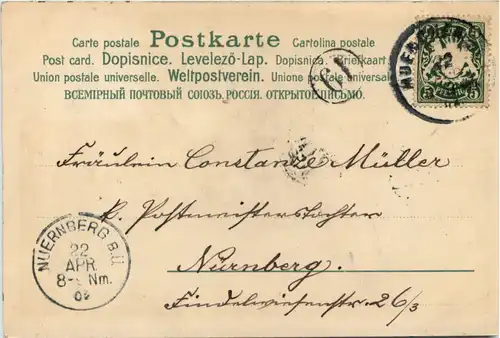 Carte postale Postkarte Cartolina postale
Post card. Dopisnice. Levelező-Lap. Dopisnica. Briefkaart
Union postale universelle. Weltpostverein. Unione postale universale
ВСЕМІРНЫЙ ПОЧТОВЫЙ СОЮЗЪ. РОССІЯ. ОТКРЫТОЕ ПИСЬМО.
5 5
Fräulein Constanze Müller
k. Postmeisterstochter
Nürnberg.
Findelwiesenstr. 26/3
NUERNBERG B.U.
22
APR.
8-9 Nm.